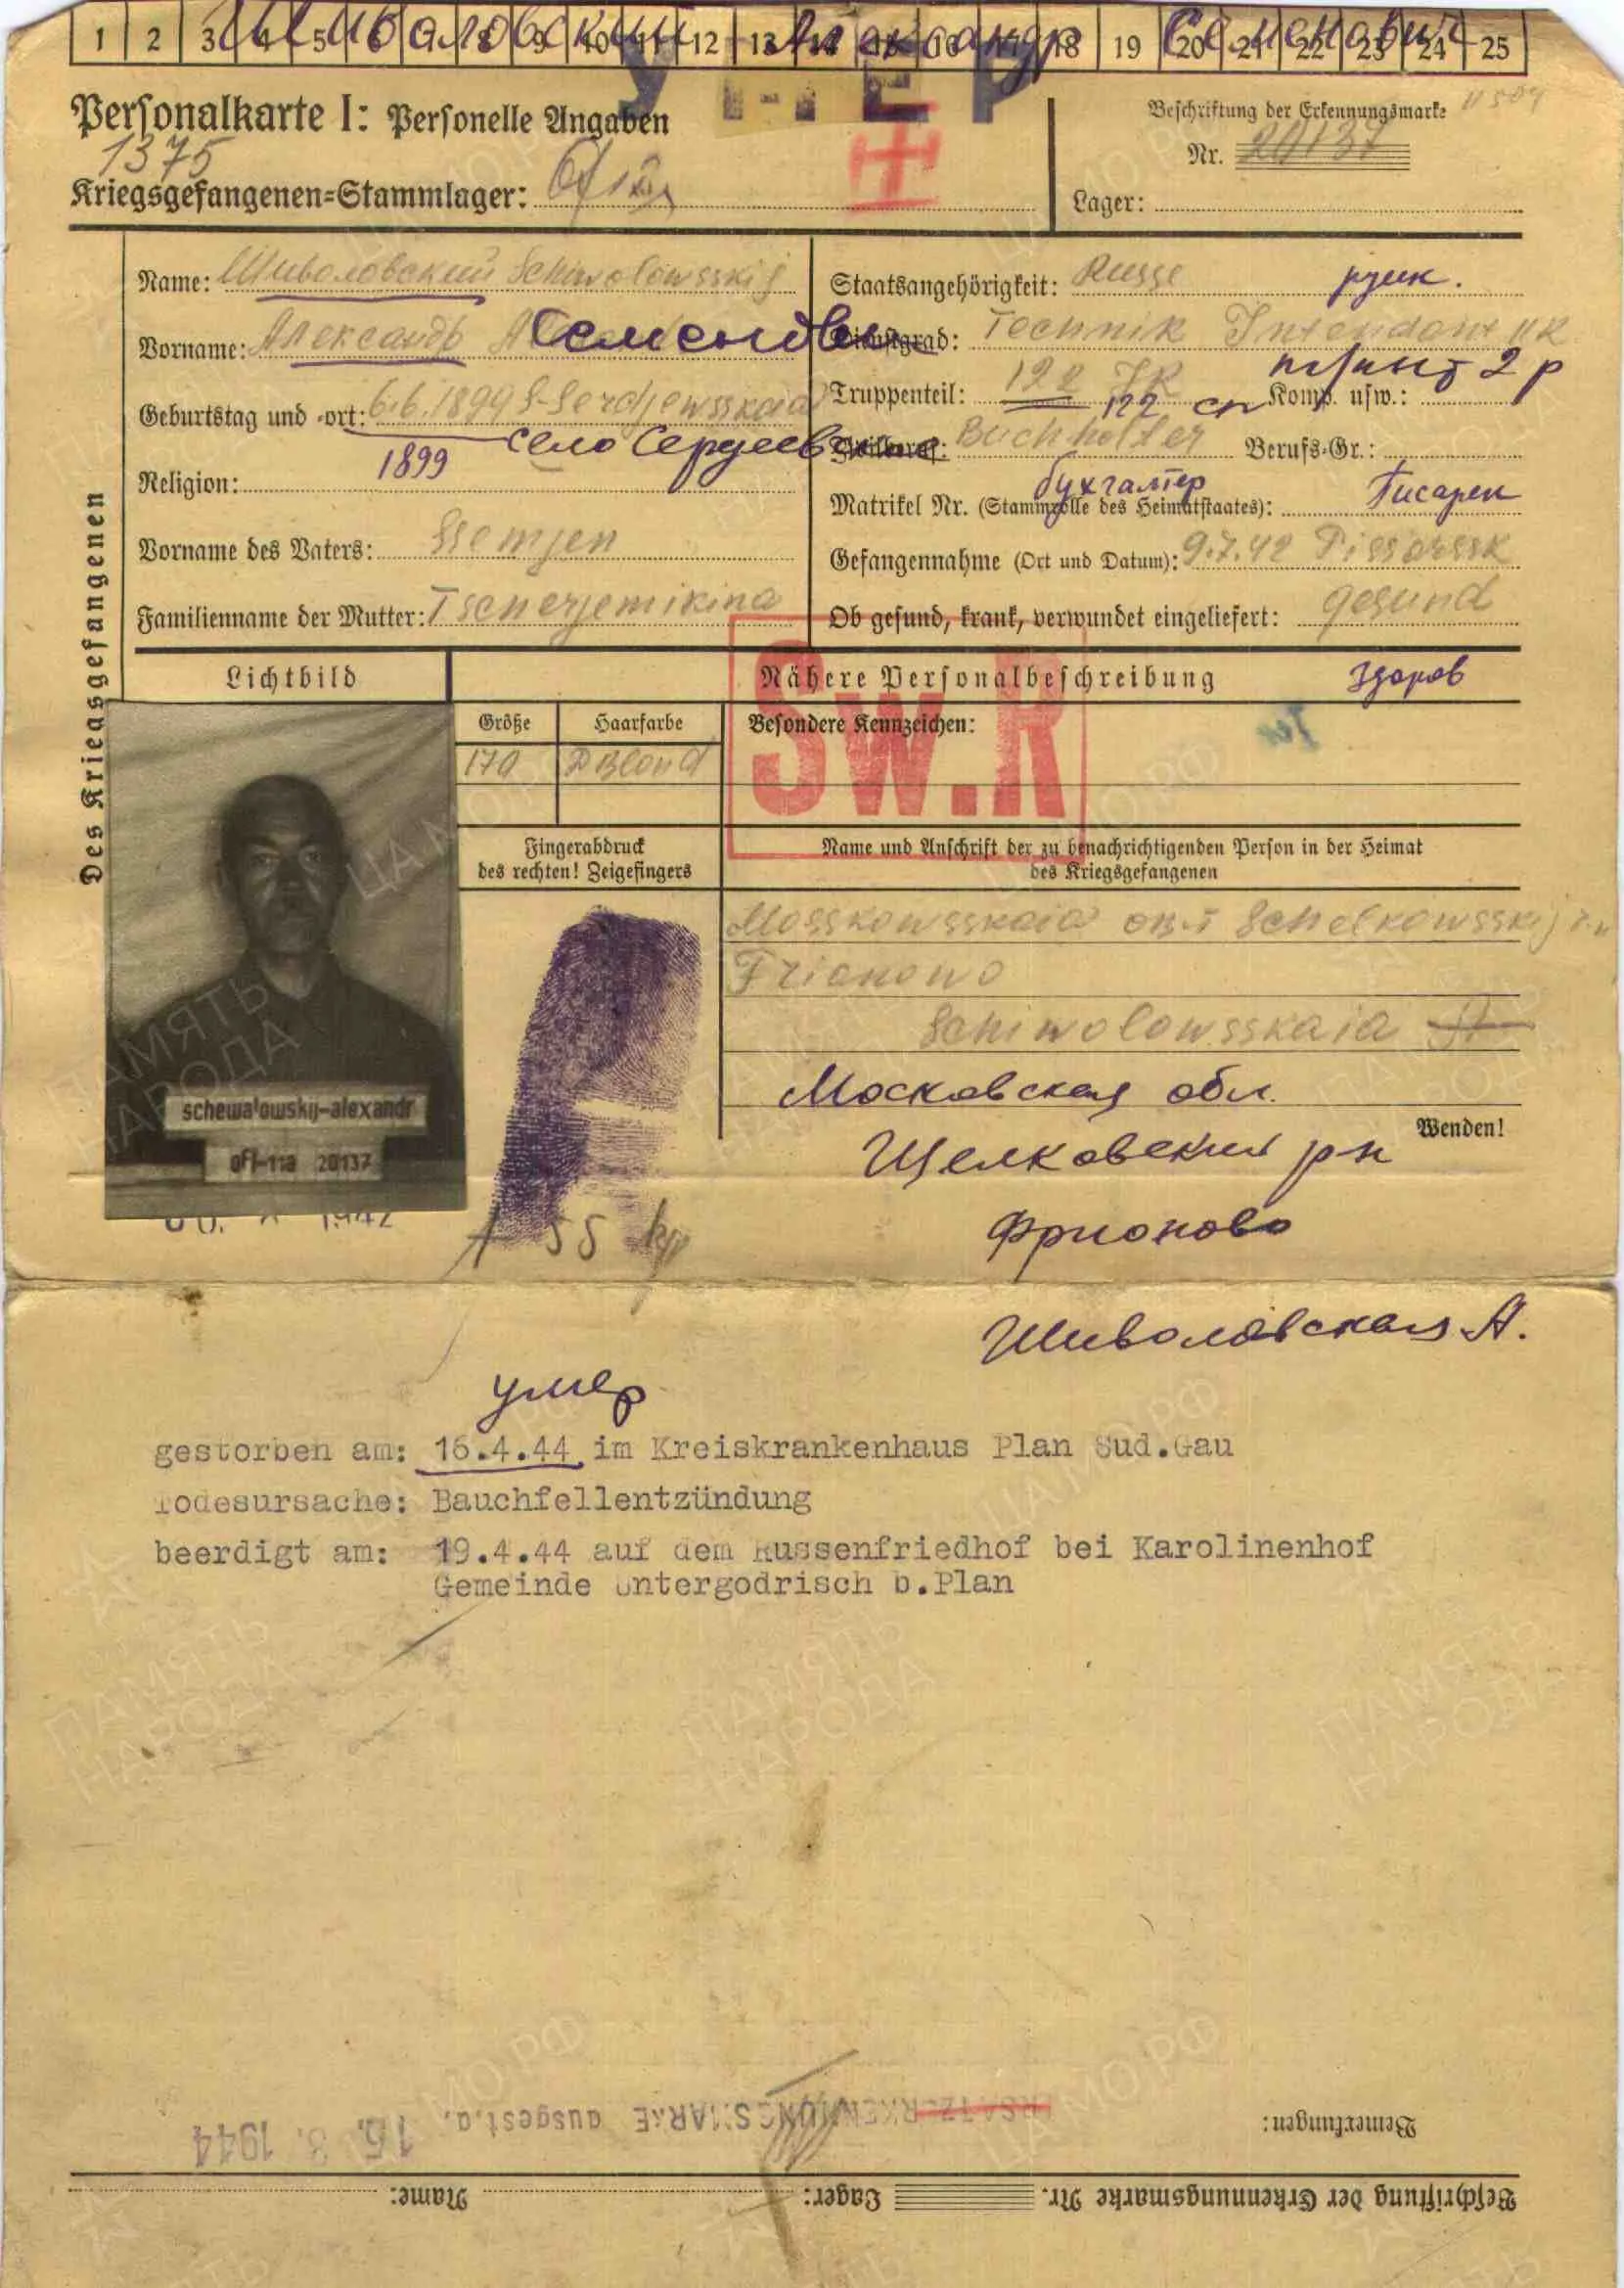 1 2 3 4 5 6 7 8 9 10 11 12 13 14 15 16 17 18 19 20 21 22 23 24 25
Шиволовский Александр Семенович
УМЕР
Personalkarte I: Personelle Angaben
1375
Kriegsgefangenen=Stammlager:
Beschriftung der Erkennungsmarke
Nr. 20137
Lager:
Des Kriegsgefangenen
Name: Шиволовский Schiwolowsskij
Vorname: Александръ Семенович
Geburtstag und -ort: 6.6.1899 S-Serdjewsskaia
1899 село Сердеевская
Religion:
Vorname des Vaters: Ssemjen
Familienname der Mutter: Tscherjemikina
Staatsangehörigkeit: Russe русск.
Dienstgrad: Technik Intendant II R
Truppenteil: 122 JR Komp. usw.:
122 сп
Zivilberuf: Buchholter Berufs-Gr.:
бухгалтер
Matrikel Nr. (Stammrolle des Heimatstaates): Писарек
Gefangennahme (Ort und Datum): 9.7.42 Pissarssk
Ob gesund, krank, verwundet eingeliefert: gesund
здоров
Lichtbild
Nähere Personalbeschreibung
Größe Haarfarbe
170 D Blond
Besondere Kennzeichen:
SW.R
Fingerabdruck
des rechten! Zeigefingers
Name und Anschrift der zu benachrichtigenden Person in der Heimat
des Kriegsgefangenen
Mosskowsskaia обл Schelkowsskij
Frionowo
Schiwolowsskaia A
Московская обл.
Wenden!
Щелковский рн
Фрионово
Шиволовская А.
schewalowskij-alexandr
ofl-11a 20137
1942
55 kg
умер
gestorben am: 16.4.44 im Kreiskrankenhaus Plan Sud.Gau
Todesursache: Bauchfellentzündung
beerdigt am: 19.4.44 auf dem Russenfriedhof bei Karolinenhof
Gemeinde Untergodrisch b.Plan
Bemerkungen:
ERSATZ-ERKENNUNGSMARKE ausgest.a. 15. 3. 1944
Beschriftung der Erkennungsmarke Nr. Lager: Name:
ПАМЯТЬ НАРОДА
ЦАМО.РФ